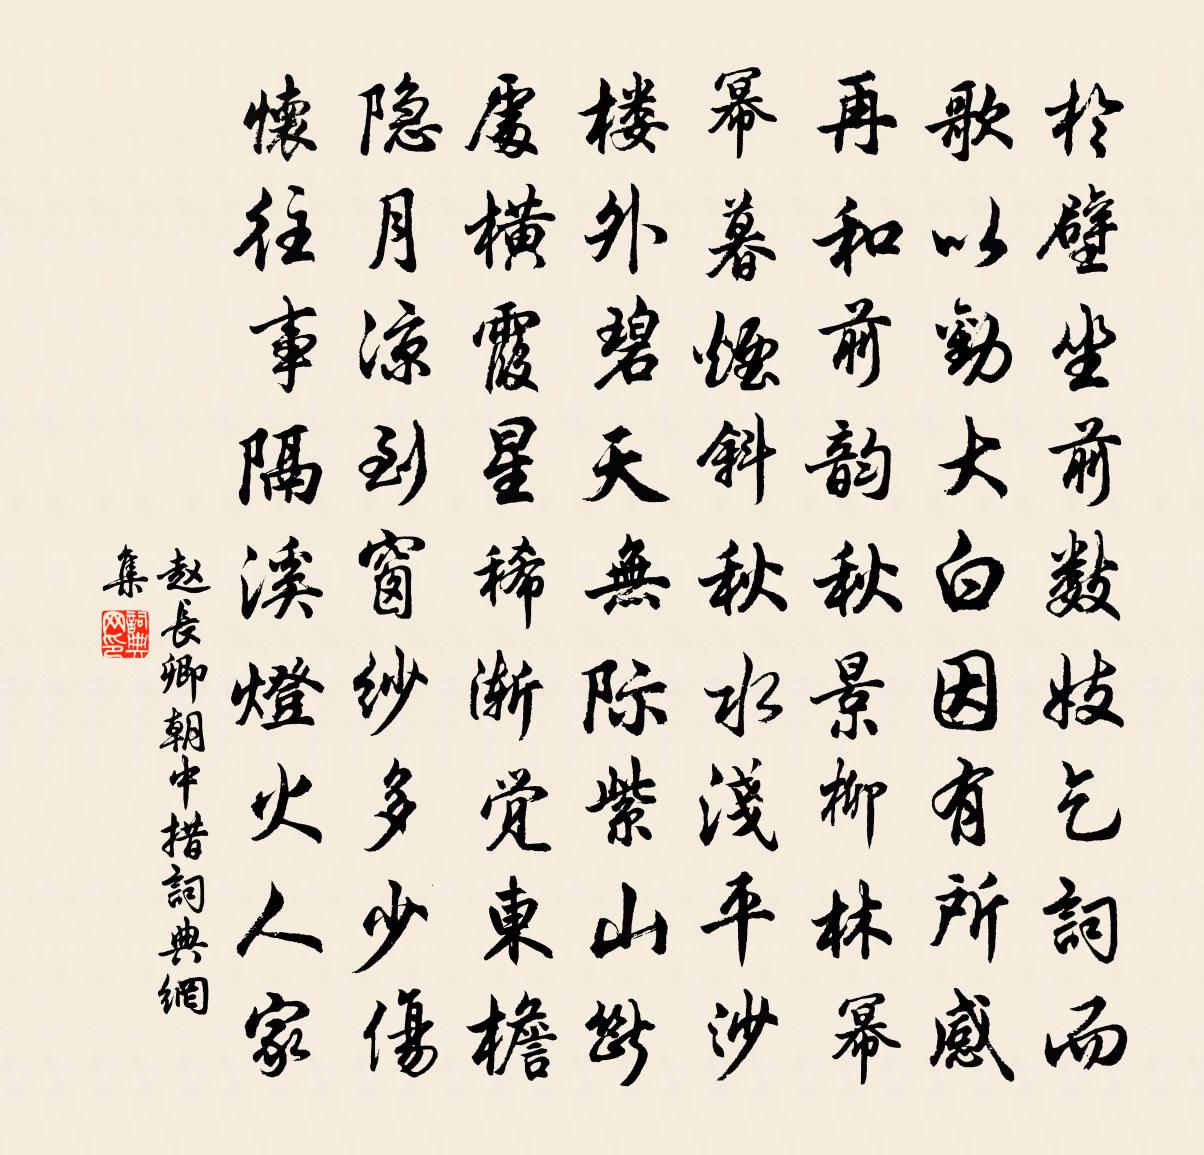 於壁坐前数妓乞詞而
歌以勸大白因有所感
再和前韵秋景柳林幂
幂暮煙斜秋水淺平沙
楼外碧天無际紫山断
處橫霞星稀渐觉東檐
隐月凉到窗纱多少傷
懷往事隔溪燈火人家
赵長卿朝中措詞典網
集
詞典
网印